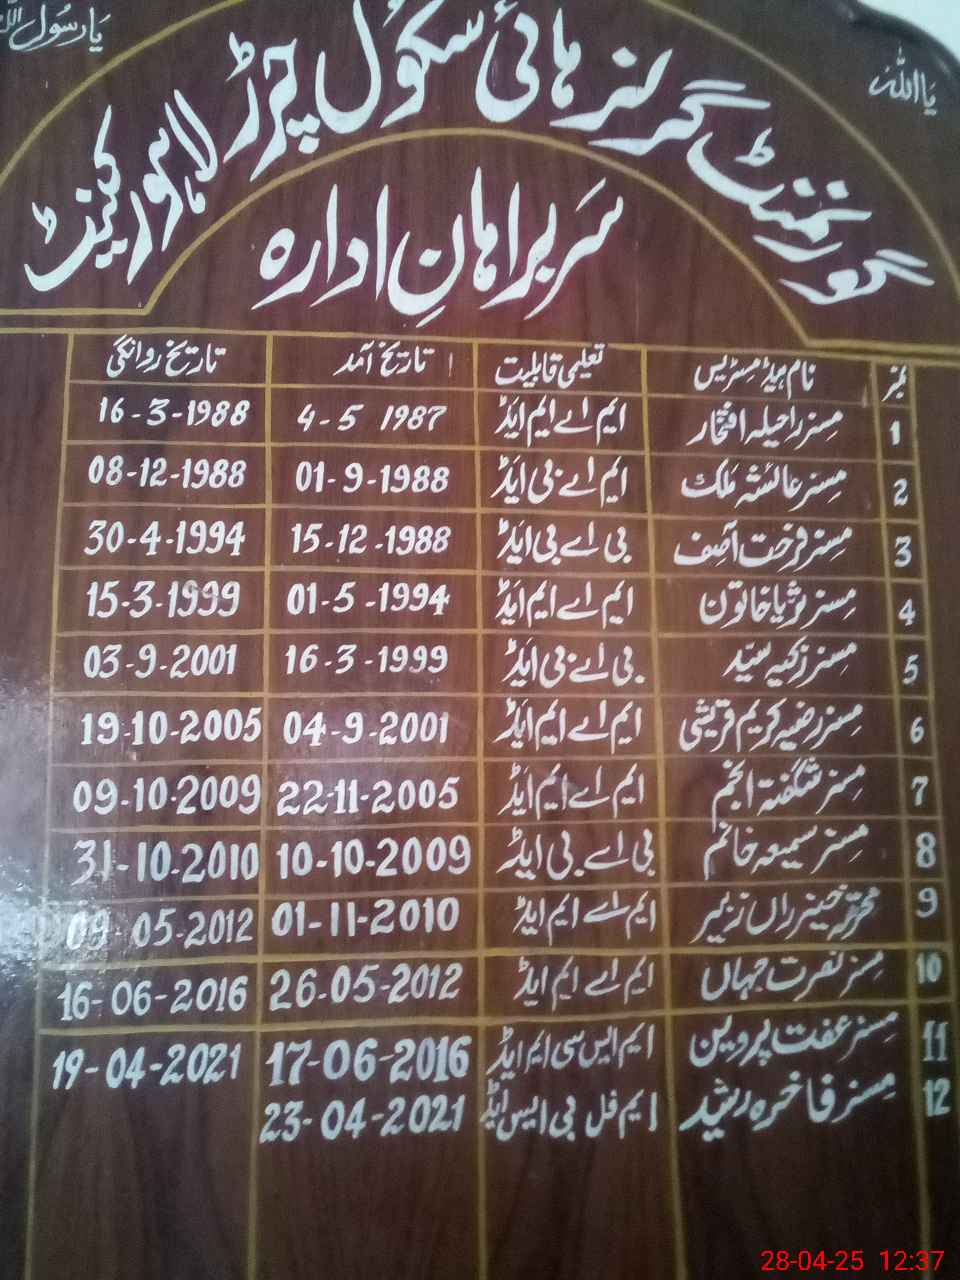 یا اللہ
یا رسول اللہ
گورنمنٹ گرلز ہائی سکول چرڑ لاہور کینٹ
سربراہانِ ادارہ
نمبر نام ہیڈ مسٹریس تعلیمی قابلیت تاریخ آمد تاریخ روانگی
1 مسز راحیلہ افتخار ایم اے ایم ایڈ 4-5 1987 16-3-1988
2 مسز عائشہ ملک ایم اے بی ایڈ 01-9-1988 08-12-1988
3 مسز فرخت آصف بی اے بی ایڈ 15-12-1988 30-4-1994
4 مسز ثریا خاتون ایم اے ایم ایڈ 01-5-1994 15-3-1999
5 مسز زکیہ سیّد بی اے بی ایڈ 16-3-1999 03-9-2001
6 مسز رضیہ کریم قریشی ایم اے ایم ایڈ 04-9-2001 19-10-2005
7 مسز شگفتہ انجم ایم اے ایم ایڈ 22-11-2005 09-10-2009
8 مسز سمیعہ خانم بی اے بی ایڈ 10-10-2009 31-10-2010
9 زبیر ایم اے ایم ایڈ 01-11-2010 09-05-2012
10 مسز نصرت جہاں ایم اے ایم ایڈ 26-05-2012 16-06-2016
11 مسز عفت پروین ایم ایس سی ایم ایڈ 17-06-2016 19-04-2021
12 مسز فاخرہ رشید ایم فل بی ایس ایڈ 23-04-2021
28-04-25 12:37